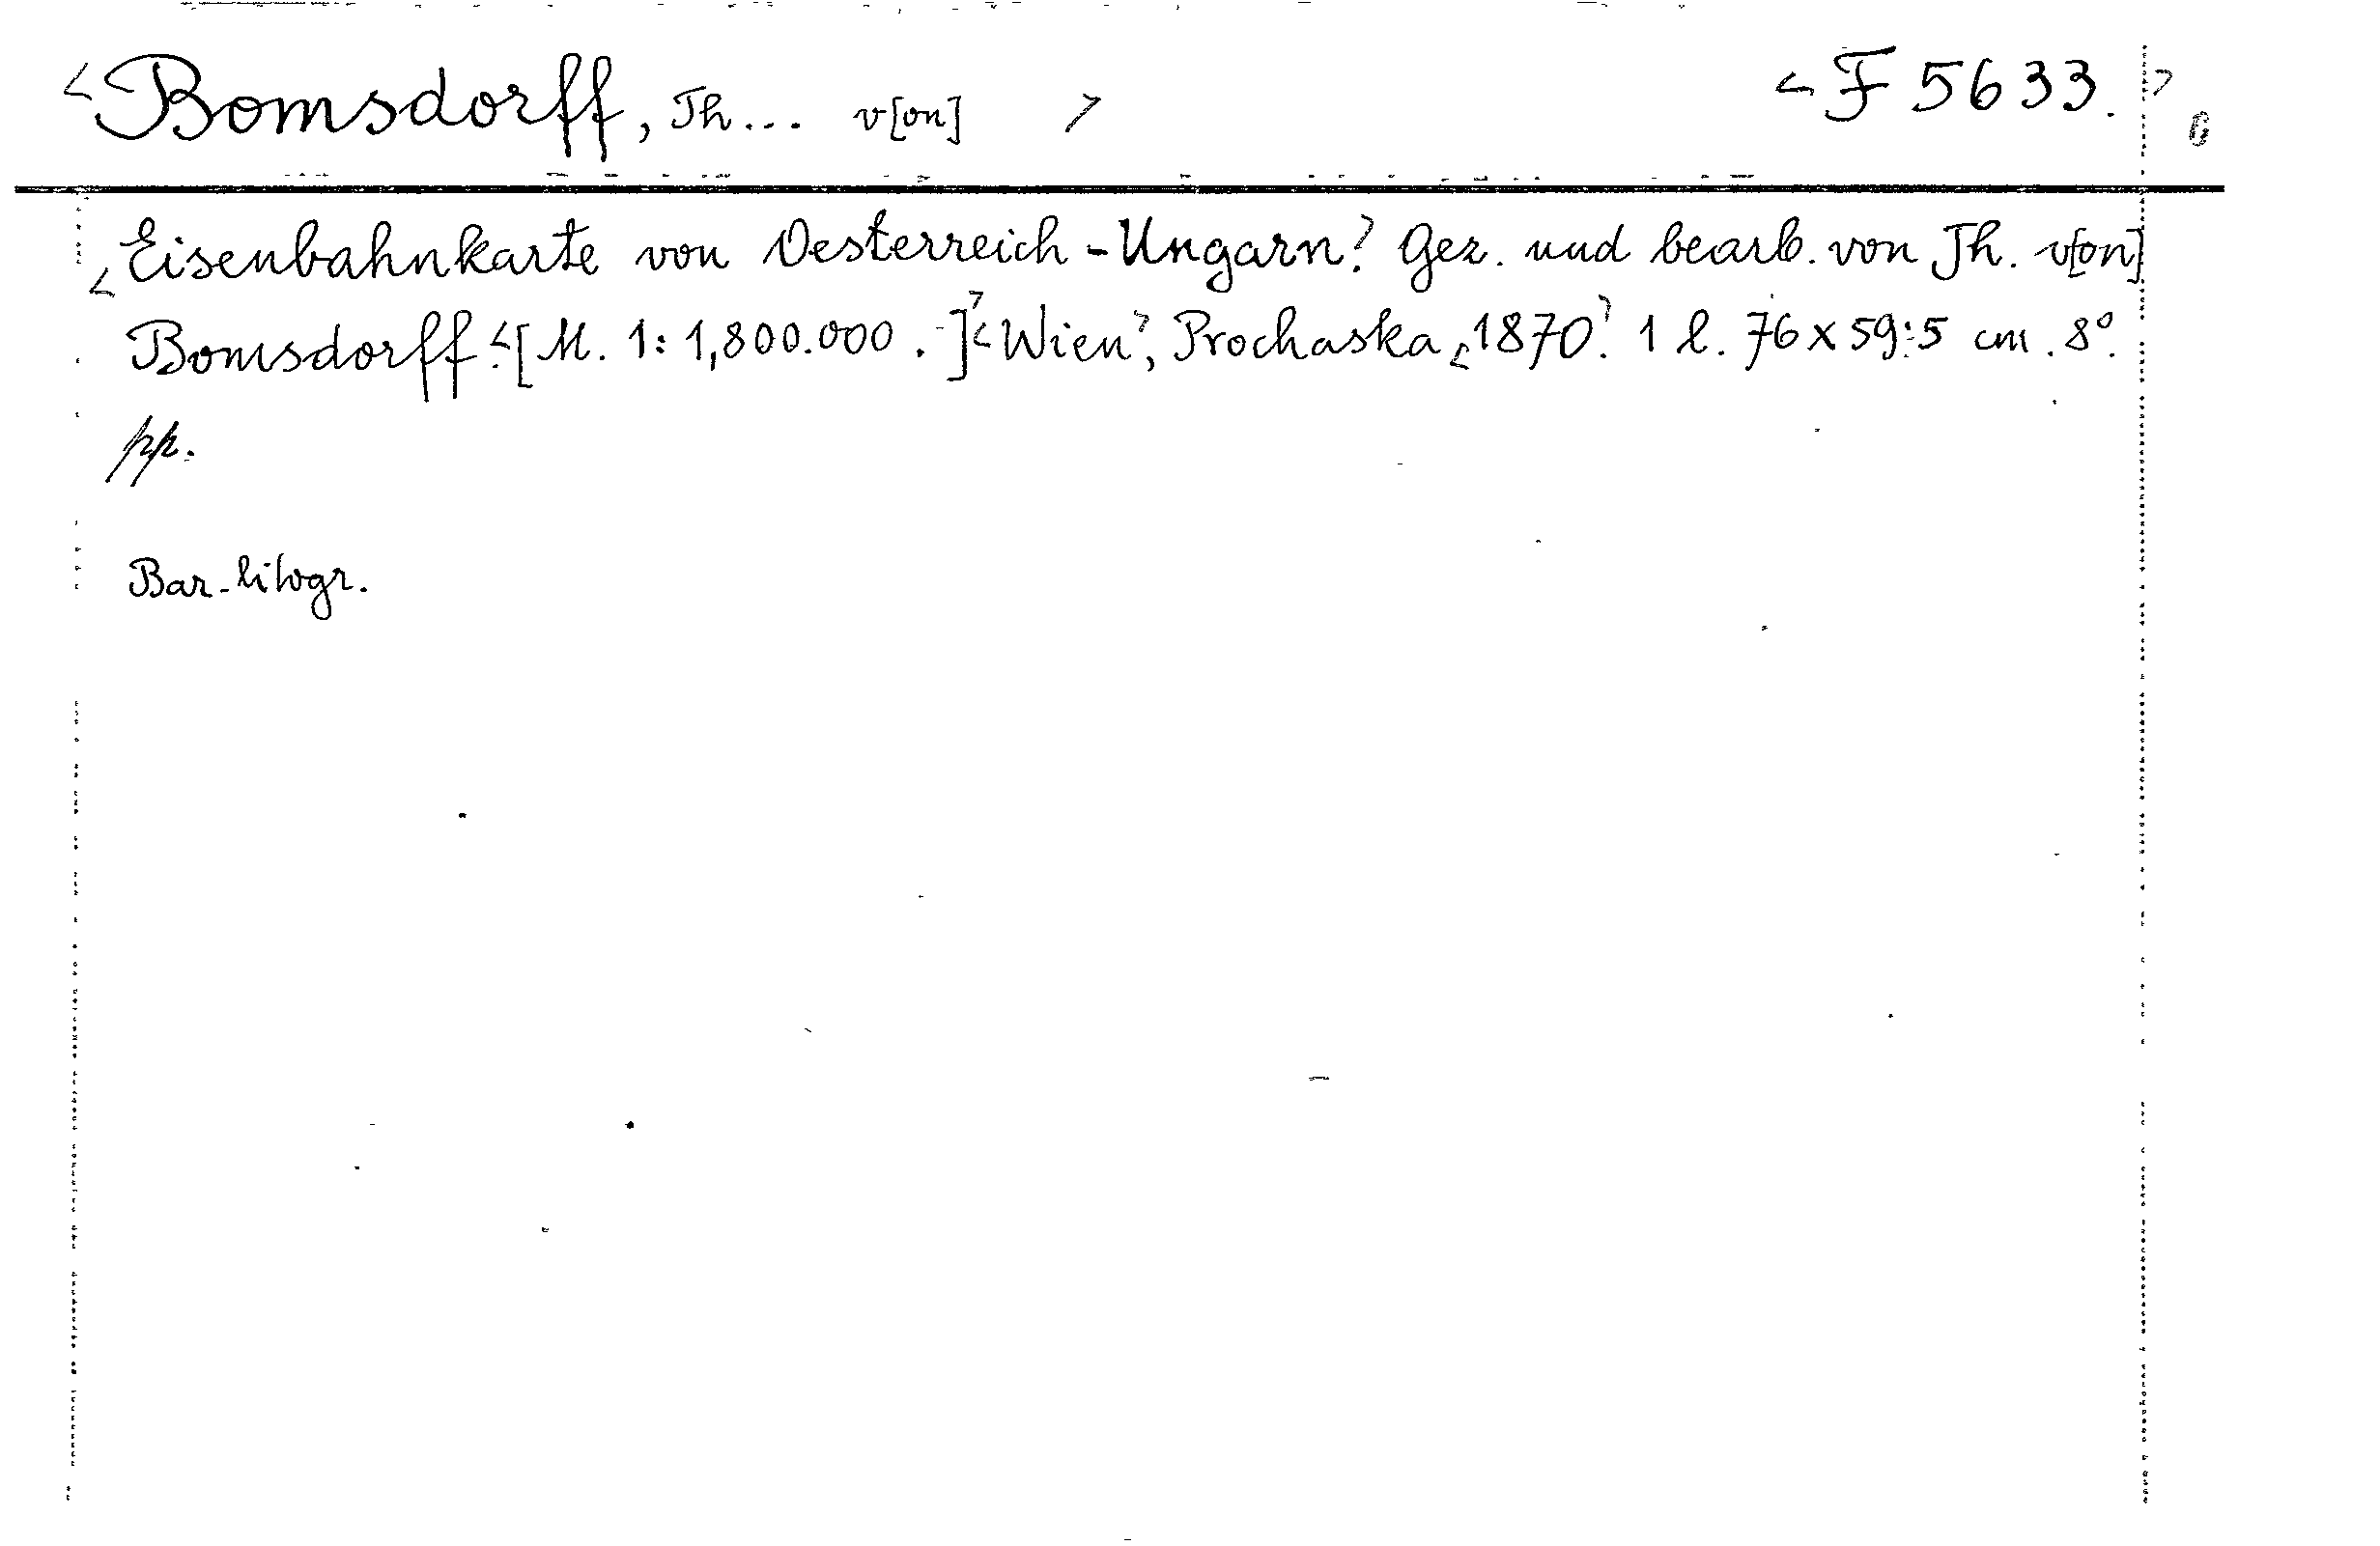 <Bomsdorff, Th... v[on] > <F 5633.>
<Eisenbahnkarte von Oesterreich-Ungarn>. Gez. und bearb. von Th. v[on]
Bomsdorff. <[M. 1:1,800.000.]> <Wien>, Prochaska, <1870>. 1 l. 76 x 59:5 cm. 8°.
pp.
Bar. litogr.